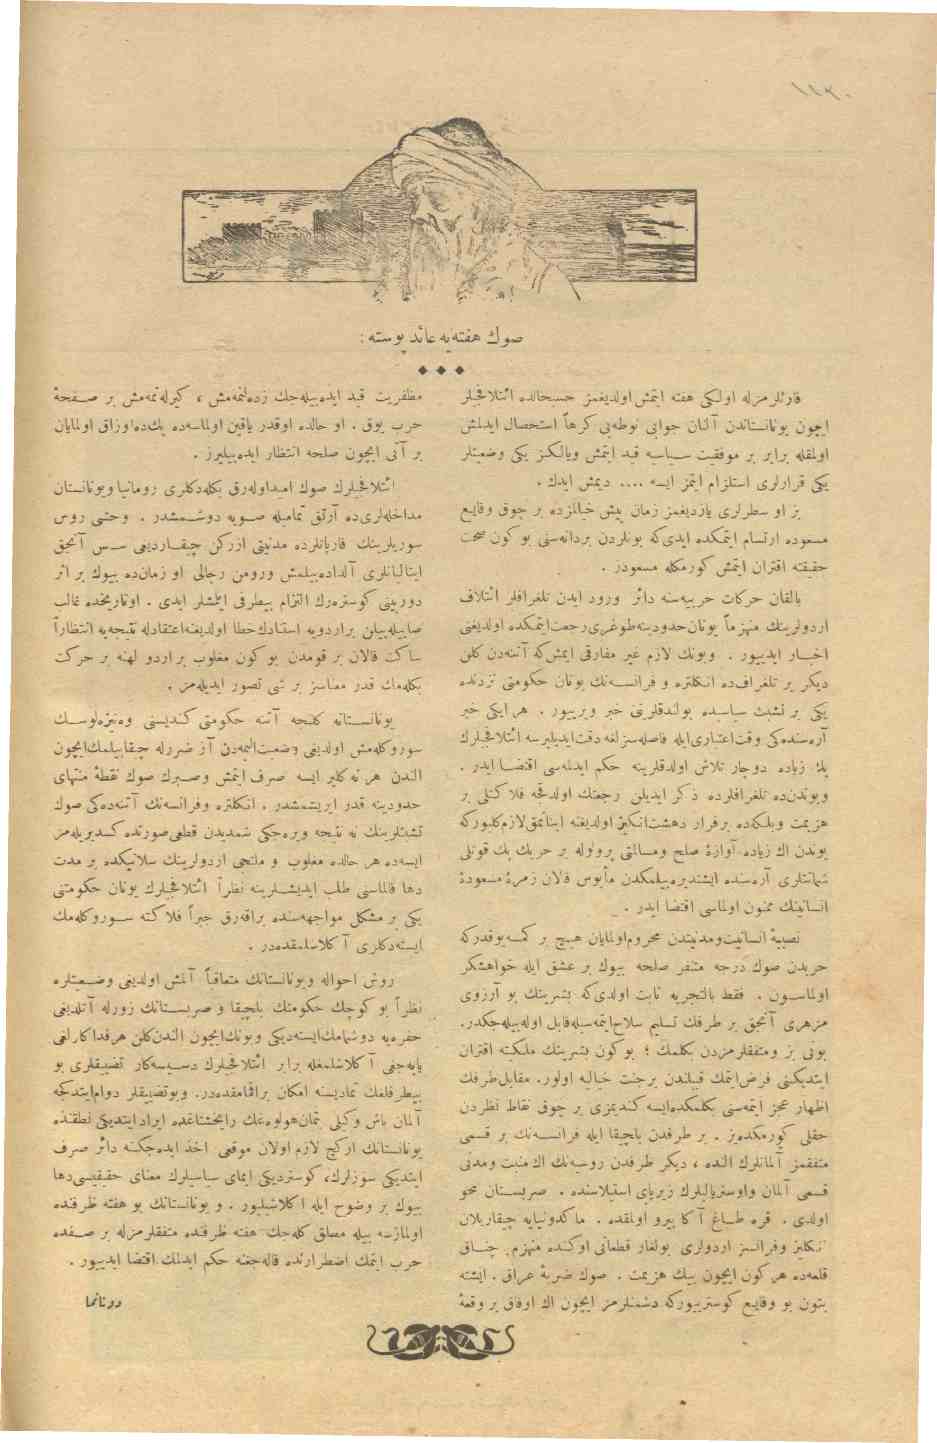 ١١٢٠
صوك هفته‌یه عائد پوسته :
قارئلرمزله اولكی هفته ایتمش اولدیغمز حسبحالده ائتلافجیلر
ایچون یونانستاندن آلنان جوابی نوطه‌یی كرهاً استحصال ایدلمش
اولمقله برابر بر موفقیت سیاسیه قید ایتمش ویالكز یكی وضعیتلر
یكی قرارلری استلزام ایتمز ایسه .... دیمش ایدك .
بز او سطرلری یازدیغمز زمان پیش خیالمزده بر چوق وقایع
مسعوده ارتسام ایتمكده ایدی‌كه بونلردن بردانه‌سنی بو كون صحت
حقیقته اقتران ایتمش كورمكله مسعودز .
بالقان حركات حربیه‌سنه دائر ورود ایدن تلغرافلر ائتلاف
اردولرینك منهزماً یونان حدودینه طوغری رجعت ایتمكده اولدیغنی
اخبار ایدییور . وبونك لازم غیر مفارقی ایمش‌كه آتنه‌دن كلن
دیكر بر تلغرافده انكلتره و فرانسه‌نك یونان حكومتی نزدنده
یكی بر تشبث سیاسیده بولندقلرینی خبر ویرییور . هر ایكی خبر
آره‌سنده‌كی وقت اعتباری‌ایله فاصله‌سزلغه دقت ایدیلیرسه ائتلافجیلرك
پك زیاده دوچار تلاش اولدقلرینه حكم ایدلمه‌سی اقتضا ایدر .
وبوندن‌ده تلغرافلرده ذكر ایدیلن رجعتك اولدقجه فلاكتلی بر
هزیمت وبلكه‌ده برفرار دهشت‌انكیز اولدیغنه اینانمق لازم‌كلیوركه
بوندن اك زیاده آوازهٔ صلح ومسالمتی پرولوله بر حربك پك قوتلی
شماتتلری آره‌سنده ایشیدیره‌بیلمكدن مأیوس قالان زمرهٔ مسعودهٔ
انسانیتك ممنون اولماسی اقتضا ایدر .
نصیبهٔ انسانیت‌ومدنیتدن محروم‌اولمایان هیچ بر كمسه‌یوقدركه
حربدن صوك درجه متنفر صلحه بیوك بر عشق ایله خواهشكر
اولماسون . فقط بالتجربه ثابت اولدی‌كه بشریتك بو آرزوی
مزهری آنجق بر طرفك تسلیم سلاح‌ایتمه‌سیله‌قابل اوله‌بیله‌جكدر.
بونی بز ومتفقلرمزدن بكلمك ؛ بوكون بشریتك ملكیته اقتران
ایتدیكنی فرض‌ایتمك قبیلندن برجنت خیالیه اولور. مقابل‌طرفك
اظهار عجز ایتمه‌سنی بكلمكده‌ایسه كندیمزی بر چوق نقاط نظردن
حقلی كورمكده‌یز . بر طرفدن بلچیقا ایله فرانسه‌نك بر قسمی
متفقمز آلمانلرك النده ، دیكر طرفدن روسیه‌نك اك منبت ومدنی
قسمی آلمان واوستریالیلرك زیرپای استیلاسنده . صربستان محو
اولدی . قره طاغ آكا پیرو اولمقده . ماكدونیایه چیقاریلان
انكلیز وفرانسز اردولری بولغار قطعاتی اوكنده منهزم. چناق
قلعه‌ده هركون ایچون بیك هزیمت . صوك ضربهٔ عراق . ایشته
بتون بو وقایع كوستریوركه دشمنلرمز ایچون اك اوفاق بر وقعهٔ
مظفریت قید ایده‌بیله‌جك زده‌لنمه‌مش ، كیرله‌تمه‌مش بر صفحهٔ
حرب یوق . او حالده اوقدر یاقین اولماسه‌ده پك‌ده‌اوزاق اولمایان
بر آتی ایچون صلحه انتظار ایده‌بیلیرز .
ائتلافجیلرك صوك امیداوله‌رق بكله‌دكلری رومانیاویونانستان
مداخله‌لری‌ده آرتق تمامیله صویه دوشمشدر . وحشی روس
سوریلرینك قارپاتلرده مدنیتی ازركن چیقاردیغی سس آنجق
ایتالیانلری آلداده‌بیلمش ورومن رجالی او زمان‌ده بیوك بر اثر
دوربینی كوستره‌رك التزام بیطرفی ایتمشلر ایدی . اونلرنجه‌ده غالب
صاییله‌بیلن براردویه استنادك‌خطا اولدیغنه‌اعتقادله نتیجه‌یه انتظاراً
ساكت قالان بر قومدن بوكون مغلوب بر اردو لهنه بر حركت
بكله‌مك قدر معناسز بر شی تصور ایدیله‌مز .
یونانستانه كلنجه آتنه حكومتی كندیسنی وه‌نیزه‌لوسك
سوروكله‌مش اولدیغی وضعیت‌الیمه‌دن آز ضررله چیقابیلمك‌ایچون
الندن هر نه‌كلیر ایسه صرف ایتمش وصبرك صوك نقطهٔ منتهای
حدودینه قدر ایریشمشدر . انكلتره وفرانسه‌نك آتنه‌ده‌كی صوك
تشبثلرینك نه نتیجه ویره‌جكی شمدیدن قطعی‌صورتده كسدیریله‌مز
ایسه‌ده هر حالده مغلوب و ملتجی اردولرینك سلانیكده بر مدت
دها قالماسی طلب ایدیشلرینه نظراً ائتلافجیلرك یونان حكومتنی
یكی بر مشكل مواجهه‌سنده براقه‌رق جبراً فلاكته سوروكله‌مك
ایسته‌دكلری آكلاشلمقده‌در .
روش احواله ویونانستانك متعاقباً آلمش اولدیغی وضعیتلره
نظراً بو كوچك حكومتك بلچیقا و صربستانك زورله آتلدیغی
حفره‌یه دوشمامك‌ایسته‌دیكی وبونك‌ایچون الندن‌كلن هرفداكارلغی
یاپه‌جغی آكلاشلمغله برابر ائتلافجیلرك دسیسه‌كار تضییقلری بو
بیطرفلغك تمادیسنه امكان براقمامقده‌در. وبوتضییقلر دوام‌ایتدكجه
آلمان باش وكیلی بتمان‌هولوه‌غك رایخشتاغده ایراد ایتدیكی نطقنده
یونانستانك ارگج لازم اولان موقعی اخذ ایده‌جكنه دائر صرف
ایتدیكی سوزلرك، كوستردیكی ایمای سیاسیلرك معنای حقیقیسی‌دها
بیوك بر وضوح ایله اكلاشیلیور . و یونانستانك بو هفته ظرفنده
اولمازسه بیله مطلق كله‌جك هفته ظرفنده متفقلرمزله بر صفده
حرب ایتمك اضطرارنده قاله‌جغنه حكم ایدلمك اقتضا ایدییور .
دونانما